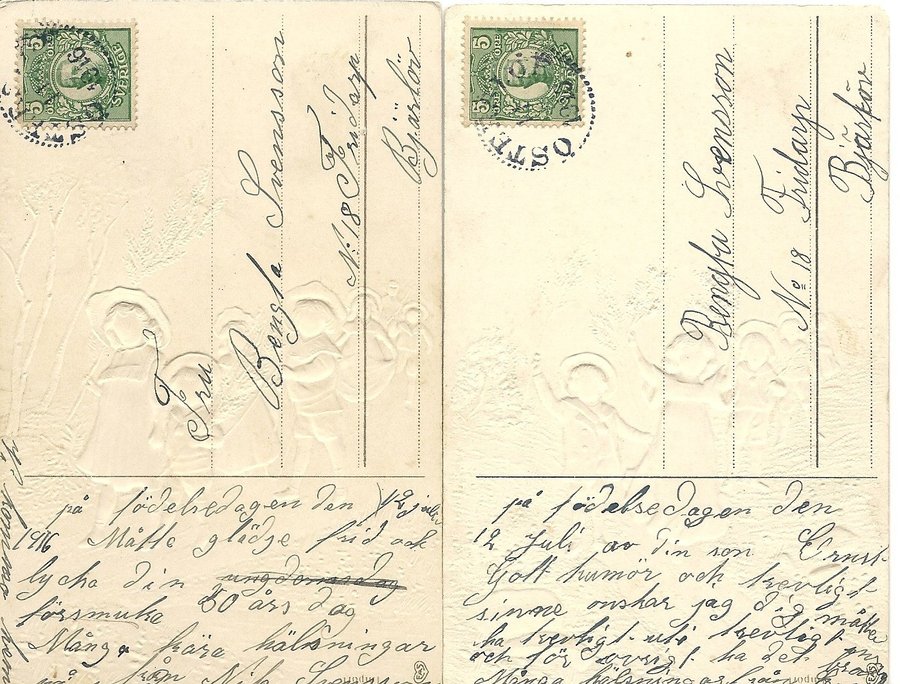 Fru
Bengta Svensson
No 18 Fridarp
Bjärlöv
på födelsedagen den 12 juli
1916 Måtte glädje frid och
lycka din ungdomsdag
försmuka 50 års dag
Många kära hälsningar
från
Vi kommas
5 ÖRE 5
SVERIGE
Bengta Svensson
No 18 Fridarp
Bjärlöv
på födelsedagen den
12 Juli av din son Ernst
Gott humör och trevligt
sinne önskar jag dig måtte
ha trevligt uti trevligt
och för övrigt ha det
Många hälsningar från
5 ÖRE 5
SVERIGE
ÖSTE